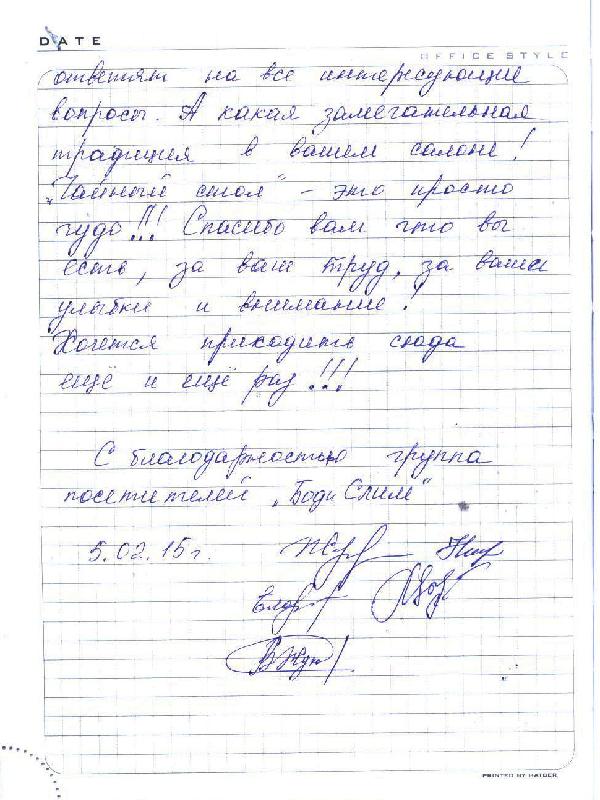 DATE
OFFICE STYLE
ответят на все интересующие
вопросы. А какая замечательная
традиция в вашем салоне!
„Чайный стол" - это просто
чудо!!! Спасибо вам что вы
есть, за ваш труд, за ваши
улыбки и внимание!
Хочется приходить сюда
ещё и ещё раз!!!
С благодарностью группа
посетителей „Боди Слим"
5.02.15г.
PRINTED BY HATBER